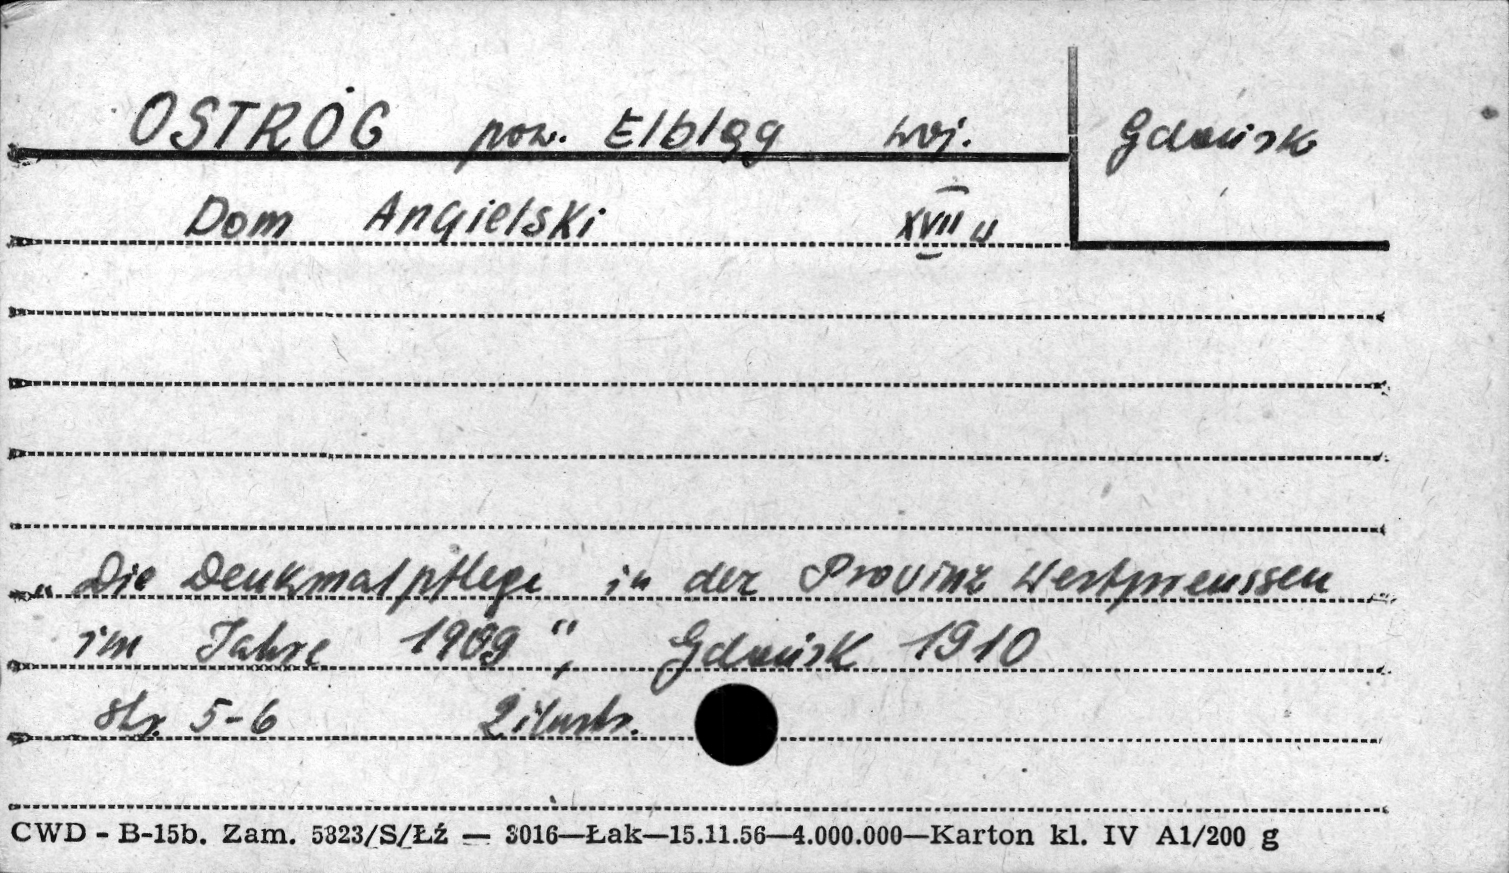 OSTRÓG pow. Elbląg woj. Gdańsk
Dom Angielski XVII w
„Die Denkmalpflege in der Provinz Westpreussen
im Jahre 1909", Gdańsk 1910
str. 5-6 2 ilustr.
CWD - B-15b. Zam. 5823/S/Łź — 3016—Łak—15.11.56—4.000.000—Karton kl. IV A1/200 g